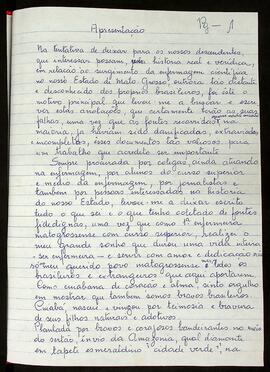 13 — A
Apresentação
Na tentativa de deixar para os nossos descendentes,
que interessar possam, uma história real e verídica,
em relação ao surgimento da enfermagem científica
no nosso Estado de Mato Grosso, outrora tão distante
e desconhecido dos próprios brasileiros, foi este o
motivo principal que levou-me a buscar e escre-
ver estas anotações, que certamente terão as suas
falhas, uma vez que as fontes recorridas na
maioria, já haviam sido danificadas, extraviadas,
incompletas, esses documentos tão valiosos para
um trabalho que acredito ser importante.
Sempre procurada, por colegas, ainda atuando
na enfermagem, por alunos do curso superior
e médio da enfermagem, por jornalistas e
também por pessoas interessadas na história
do nosso Estado, levou-me a deixar escrito
tudo o que sei e o que tenho coletado de fontes
fidedignas, uma vez que como 1ª enfermeira
matogrossense com curso superior, realizei o
meu grande sonho que durou uma vida inteira
- ser enfermeira - e servir com amor e dedicação não
só meu querido povo matogrossense, mas todos os
brasileiros e estrangeiros que aqui aportaram.
Como cuiabana de coração e alma, sinto orgulho
em mostrar que também somos bravos brasileiros.
Cuiabá, nasceu e vingou por teimosia e bravura
de seus filhos naturais e adotivos.
Plantada por bravos e corajosos bandeirantes no meio
do sertão, início da Amazônia, qual diamante
em tapete esmeraldino "cidade verde", na